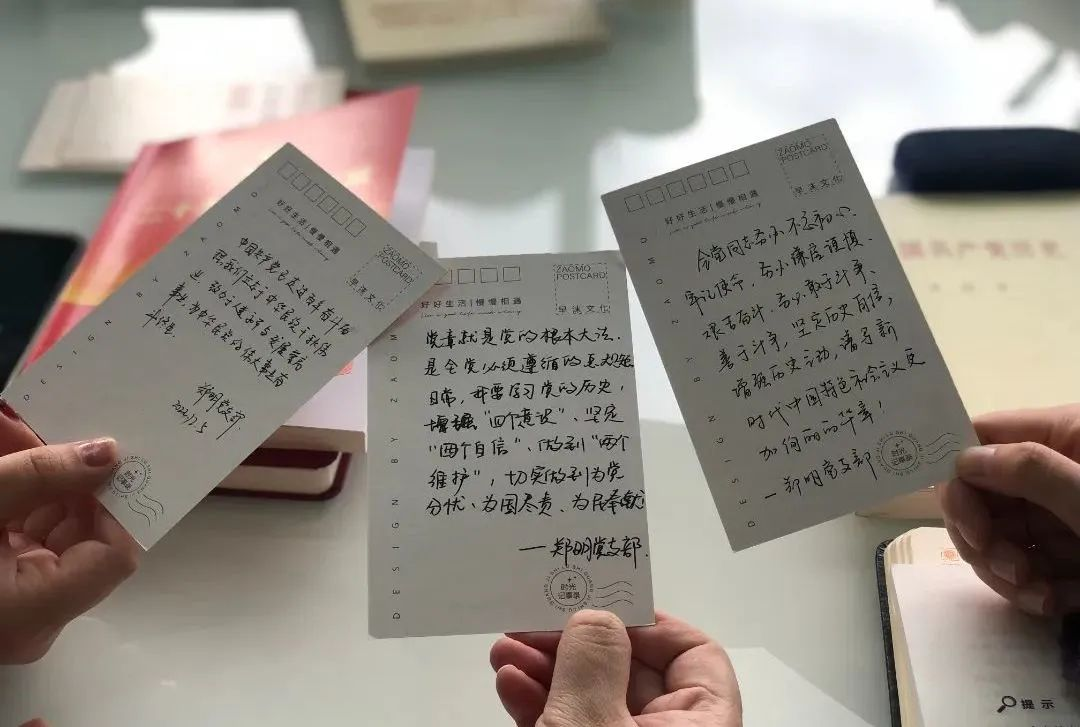 好好生活|慢慢相遇
ZAOMO
POSTCARD
早沫文化
中国共产党已走过百年奋斗历
程,我们立志于中华民族千秋伟
业,
郑明党支部
DESIGN BY ZAOMO
好好生活|慢慢相遇
ZAOMO
POSTCARD
早沫文化
党章就是党的根本大法,
是全党必须遵循的总规矩
日常,我要学习党的历史,
增强"四个意识"、坚定
"四个自信"、做到"两个
维护",切实做到为党
分忧、为国尽责、为民奉献
—郑明党支部.
时光
记事录
DESIGN BY ZAOMO
好好生活|慢慢相遇
ZAOMO
POSTCARD
早沫文化
全党同志务必不忘初心、
牢记使命,务必谦虚谨慎、
艰苦奋斗,务必敢于斗争、
善于斗争,坚定历史自信,
增强历史主动,谱写新
时代中国特色社会主义更
加绚丽的华章!
—郑明党支部
时光
记事录
DESIGN BY ZAOMO
国共产党历史
提示